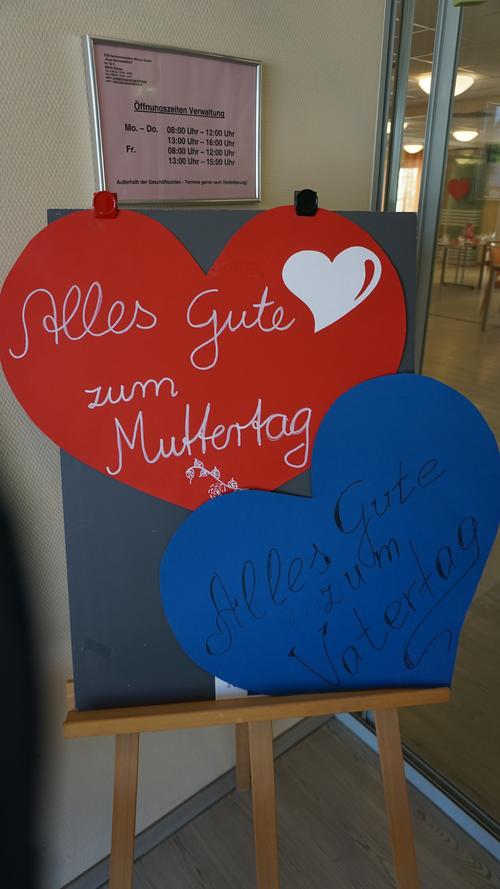 Öffnungszeiten Verwaltung
Mo. – Do. 08:00 Uhr – 12:00 Uhr
13:00 Uhr – 16:00 Uhr
Fr. 08:00 Uhr – 12:00 Uhr
13:00 Uhr – 15:00 Uhr
Außerhalb der Geschäftszeiten - Termine gerne nach Vereinbarung!
Alles Gute
zum
Muttertag
Alles Gute
zum
Vatertag